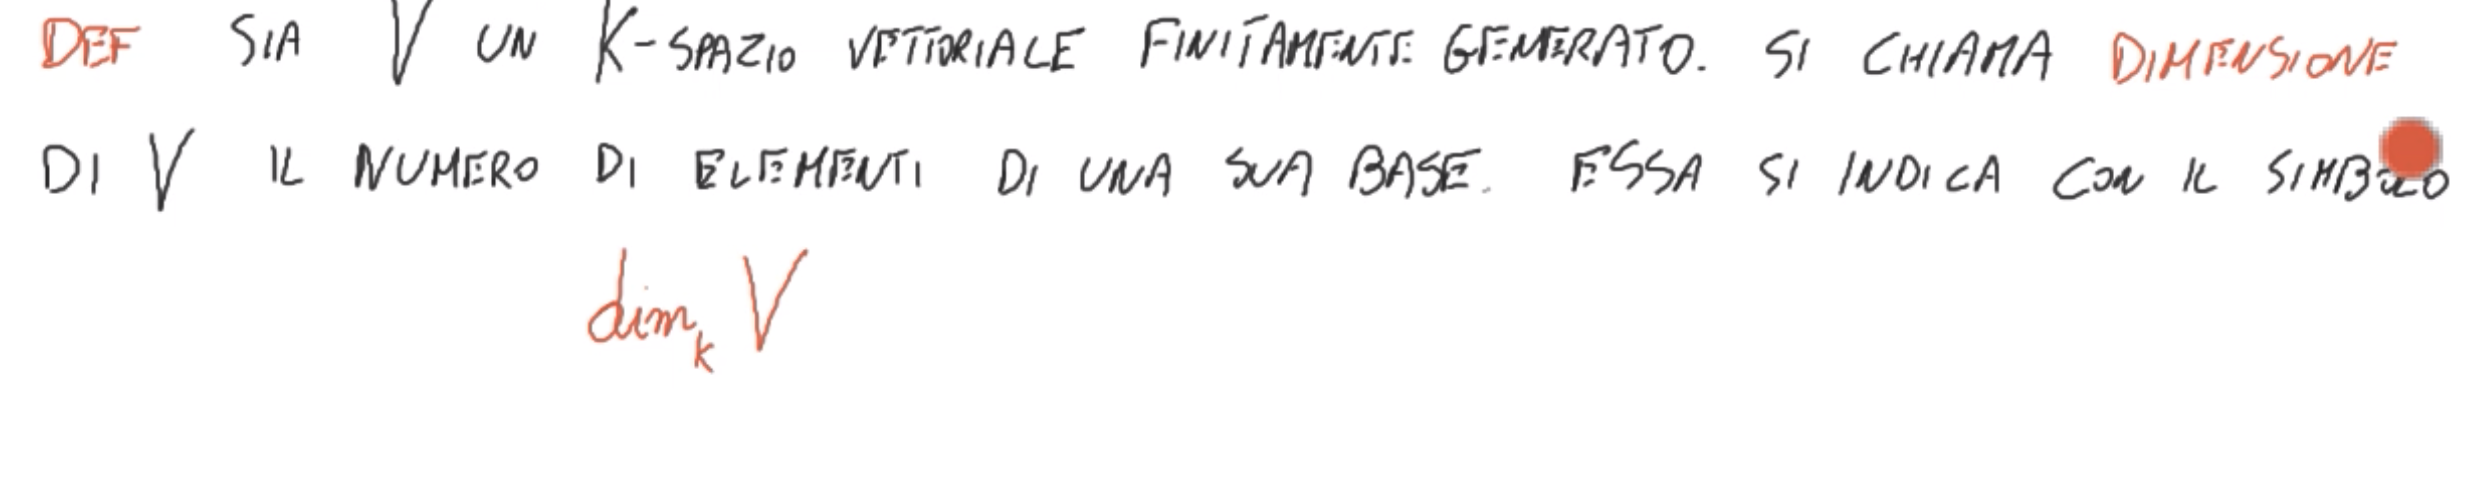 DEF SIA V UN K-SPAZIO VETTORIALE FINITAMENTE GENERATO. SI CHIAMA DIMENSIONE
DI V IL NUMERO DI ELEMENTI DI UNA SUA BASE. ESSA SI INDICA CON IL SIMBOLO
dim_K V